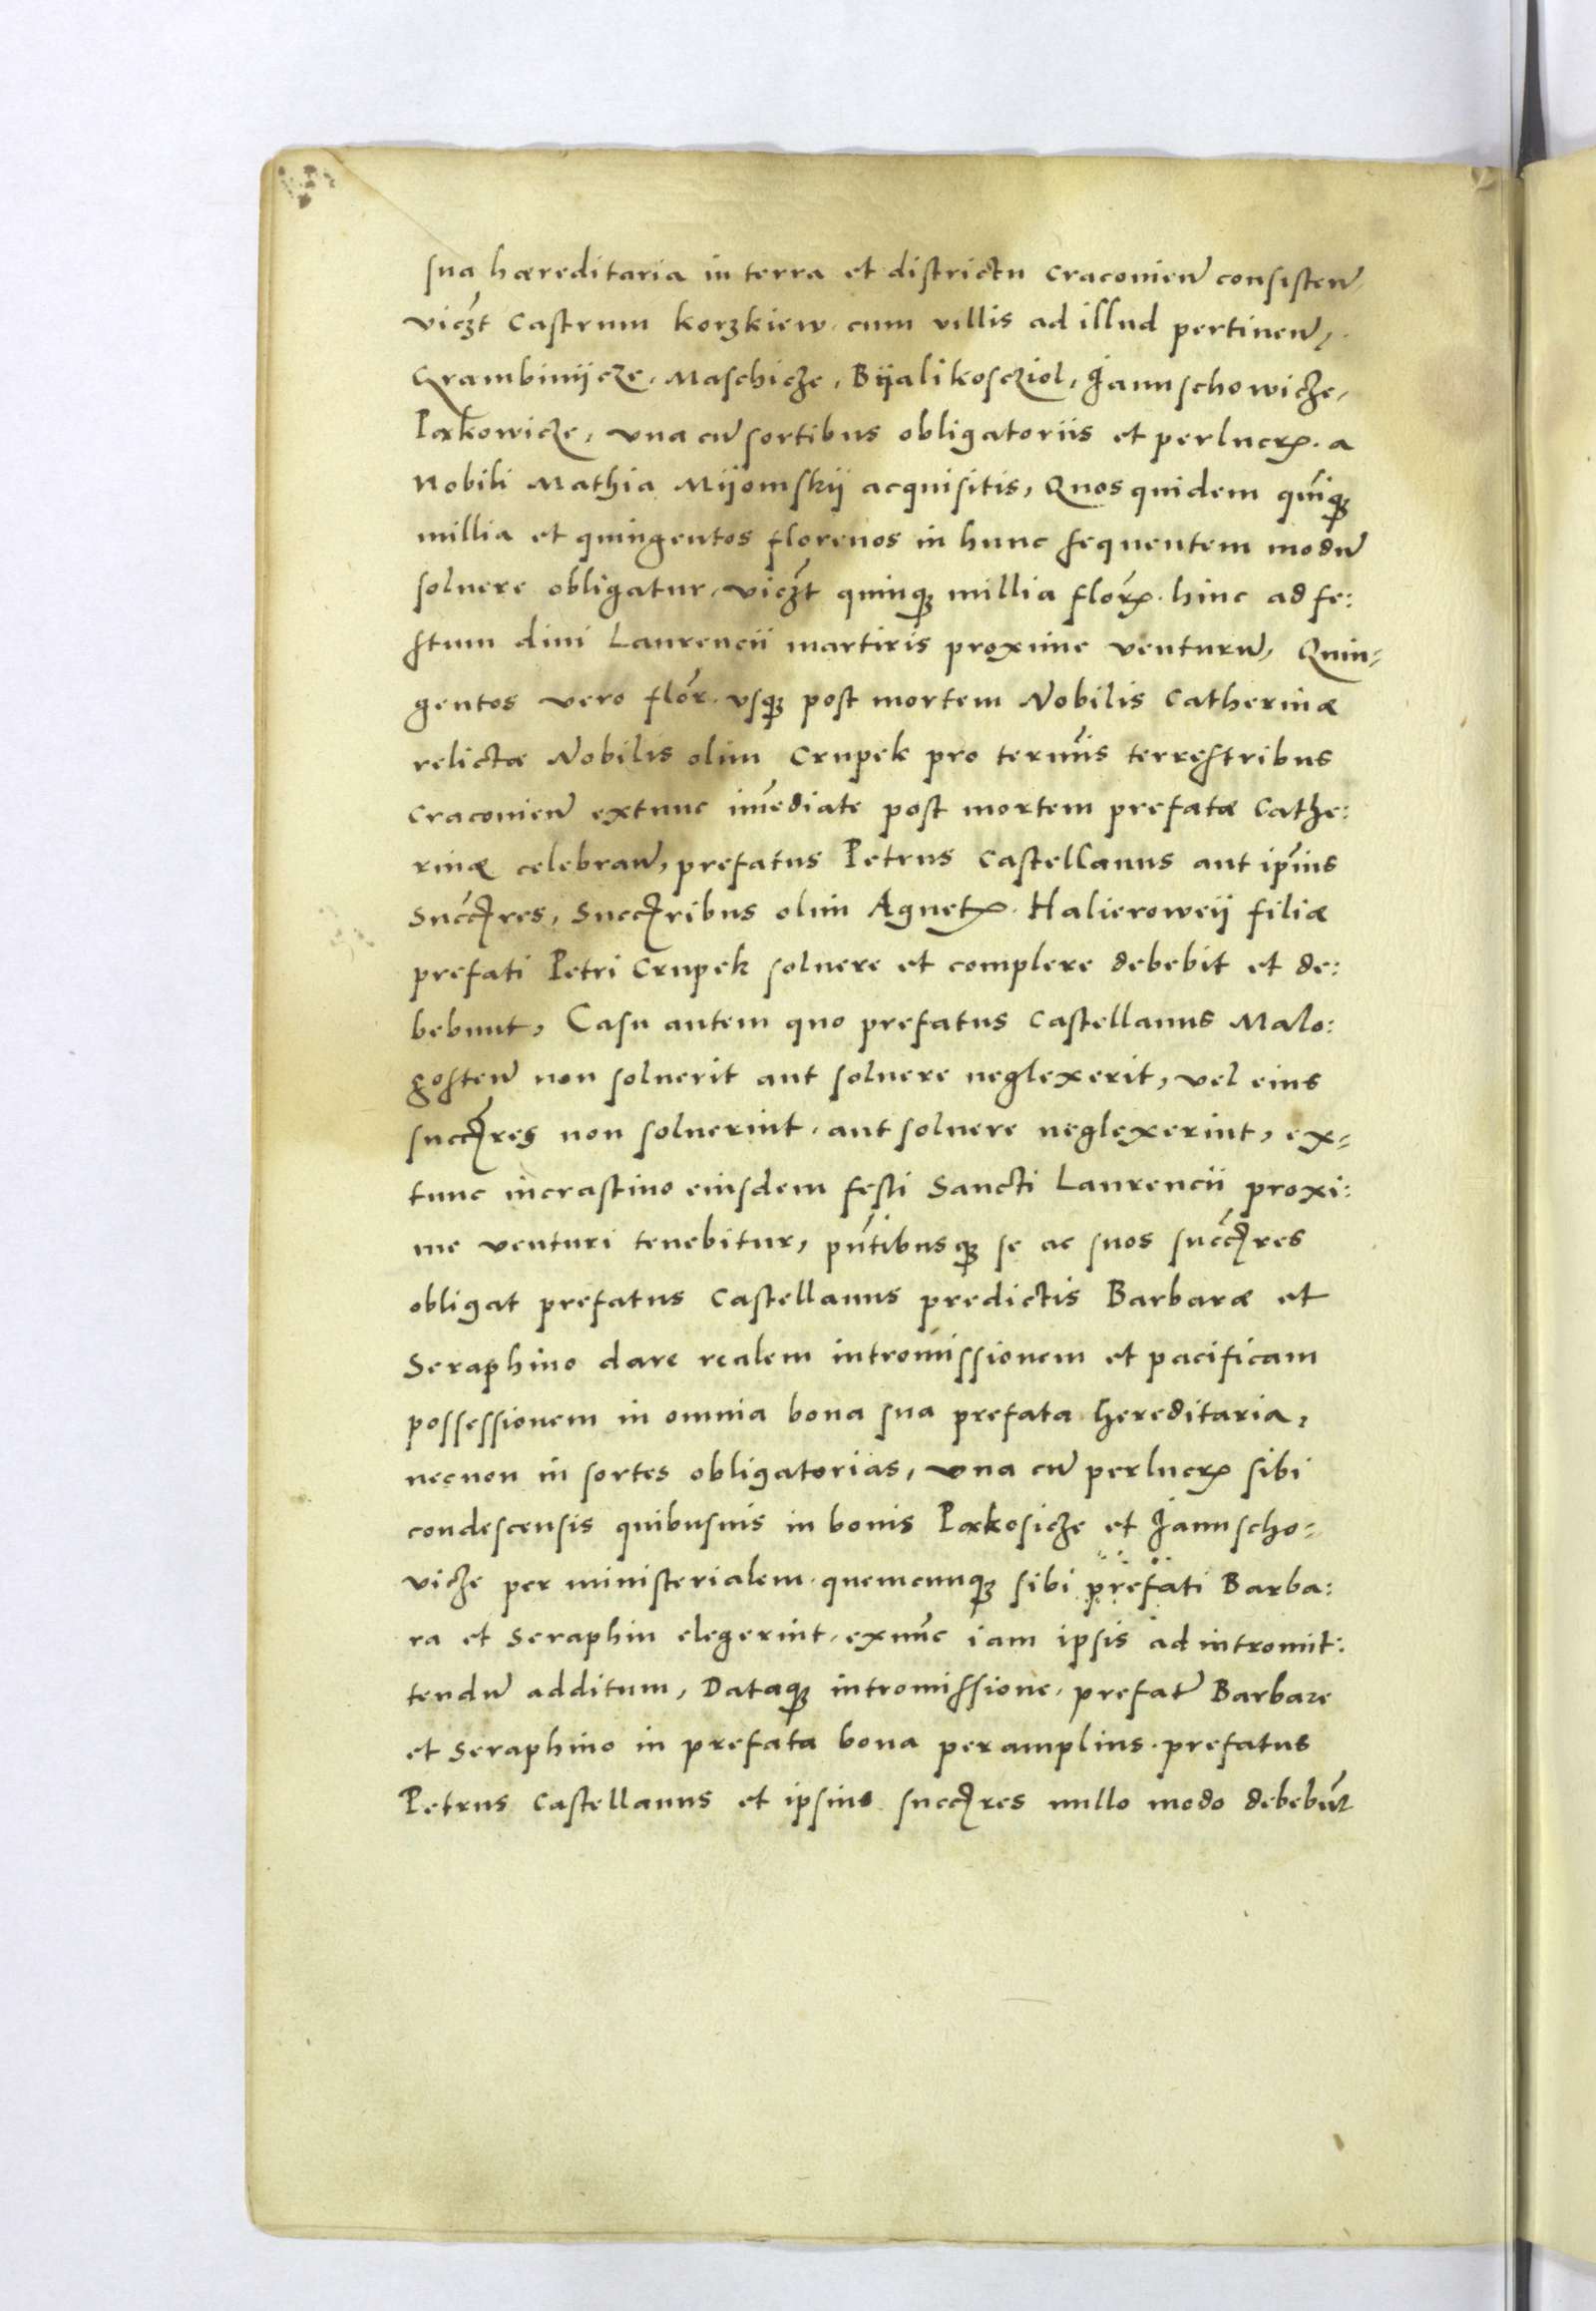 sua hæreditaria in terra et districtu Craconien̄ consisten̄
viczt Castrum Korzkiew cum villis ad illud pertinen̄,
Grambinijcze, Maschicze, Bijalikoscziol, Jannschowicze,
Pækowicze, vna cū sortibus obligatoriis et perlucrꝝ. a
Nobili Mathia Mijomskij acquisitis, Quos quidem quīqꝫ
millia et quingentos florenos in hunc sequentem modū
soluere obligatur, viczt quinqꝫ millia florꝝ. hinc ad fe:
stum diui Laurencii martiris proxime venturū, Quin=
gentos vero flor̄. vsqꝫ post mortem Nobilis Catherinæ
relictæ Nobilis olim Crupek pro termīs terrestribus
Craconien̄ extunc īmediate post mortem prefatæ Cathe:
rinæ celebran̄, prefatus Petrus Castellanus aut ip̄ius
Succꝭres, Succꝭribus olim Agnetꝝ. Halieroweij filiæ
prefati Petri Crupek soluere et complere debebit et de:
bebunt, Casu autem quo prefatus Castellanus Malo:
gosten̄ non soluerit aut soluere neglexerit, vel eius
succꝭres non soluerint, aut soluere neglexerint, ex=
tunc incrastino eiusdem festi Sancti Laurencii proxi:
me venturi tenebitur, pn̄tibusqꝫ se ac suos succꝭres
obligat prefatus Castellanus predictis Barbaræ et
Seraphino dare realem intromissionem et pacificam
possessionem in omnia bona sua prefata hereditaria,
necnon in sortes obligatorias, vna cū perlucrꝝ sibi
condescensis quibusuis in bonis Pækosicze et Jannscho=
vicze per ministerialem quemcunqꝫ sibi prefati Barba:
ra et Seraphin elegerint, exnūc iam ipsis ad intromit:
tendū additum, Dataqꝫ intromissione, prefat̄ Barbare
et Seraphino in prefata bona per amplius, prefatus
Petrus Castellanus et ipsius succꝭres nullo modo debebūt